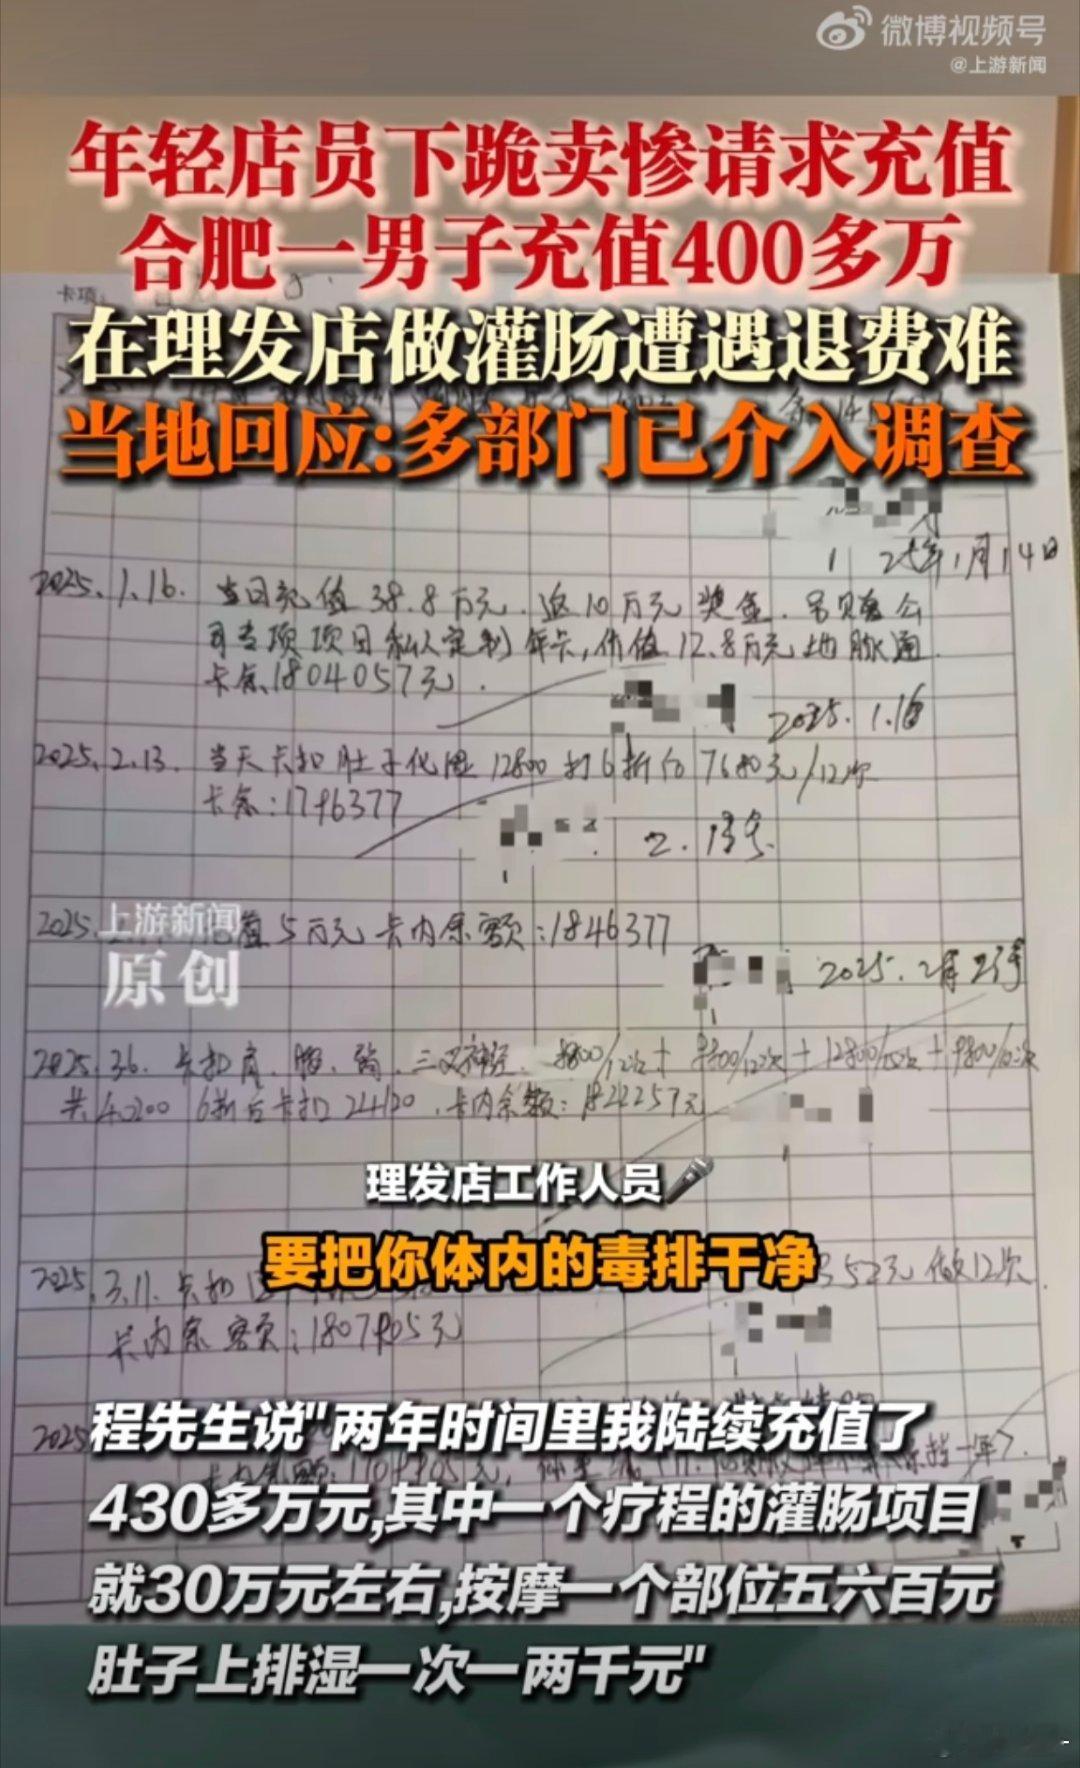 微博视频号
@上游新闻
年轻店员下跪卖惨请求充值
合肥一男子充值400多万
卡项:
在理发店做灌肠遭遇退费难
当地回应:多部门已介入调查
25年1月14日
2025.1.16. 当日充值38.8万元.返10万元奖金.另贝赠公
司专项项目私人定制年卡,价值12.8万元地脉通.
卡余1804057元.
2025.1.16
2025.2.13. 当天卡扣肚子化湿12800打6折后7680元/12次
卡余:1796377
2.13号
2025. 值5万元卡内余额:1846377
上游新闻
原创
2025.2月23号
2025.3.6. 卡扣肩. 三叉神经. 8800/12次+ 8800/12次+12800/ 次+9800/ 次
共40200 6折后卡扣24120.卡内余额:1822257元
理发店工作人员
要把你体内的毒排干净
2025.3.11.卡扣 52元做12次
卡内余额:1807905元
2025
程先生说"两年时间里我陆续充值了
430多万元,其中一个疗程的灌肠项目
就30万元左右,按摩一个部位五六百元
肚子上排湿一次一两千元"